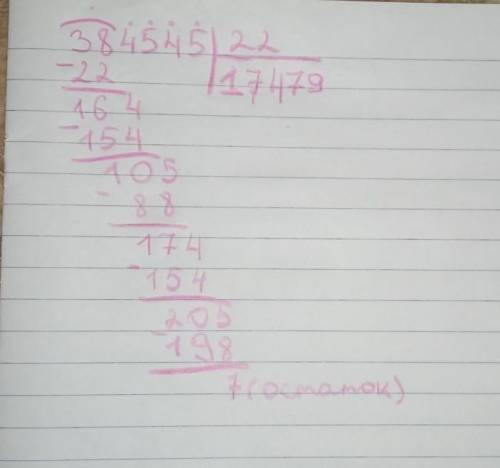 384545 22
-22 17479
164
-154
105
-88
174
-154
205
-198
7 (остаток)